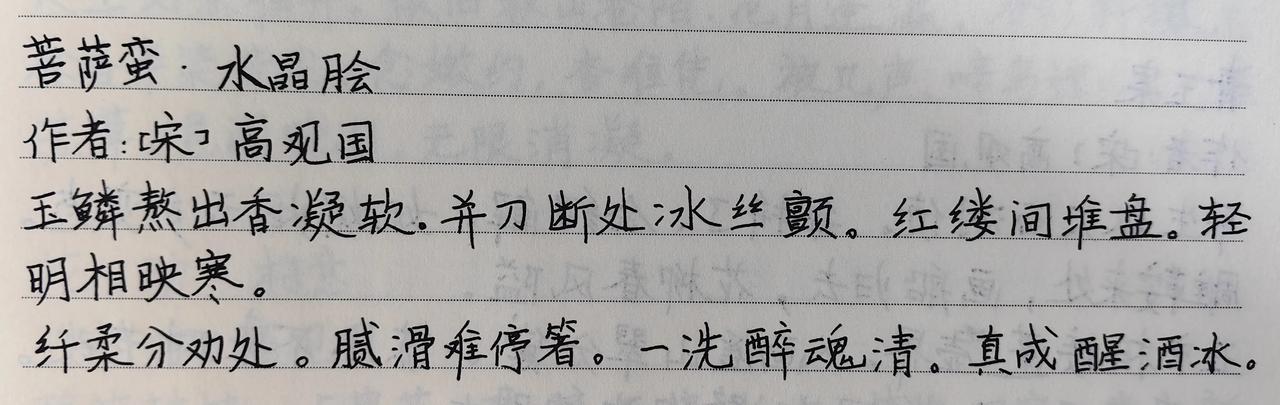 菩萨蛮·水晶脍
作者:[宋]高观国
玉鳞熬出香凝软.并刀断处冰丝颤。红缕间堆盘。轻
明相映寒。
纤柔分劝处。腻滑难停箸。一洗醉魂清。真成醒酒冰。